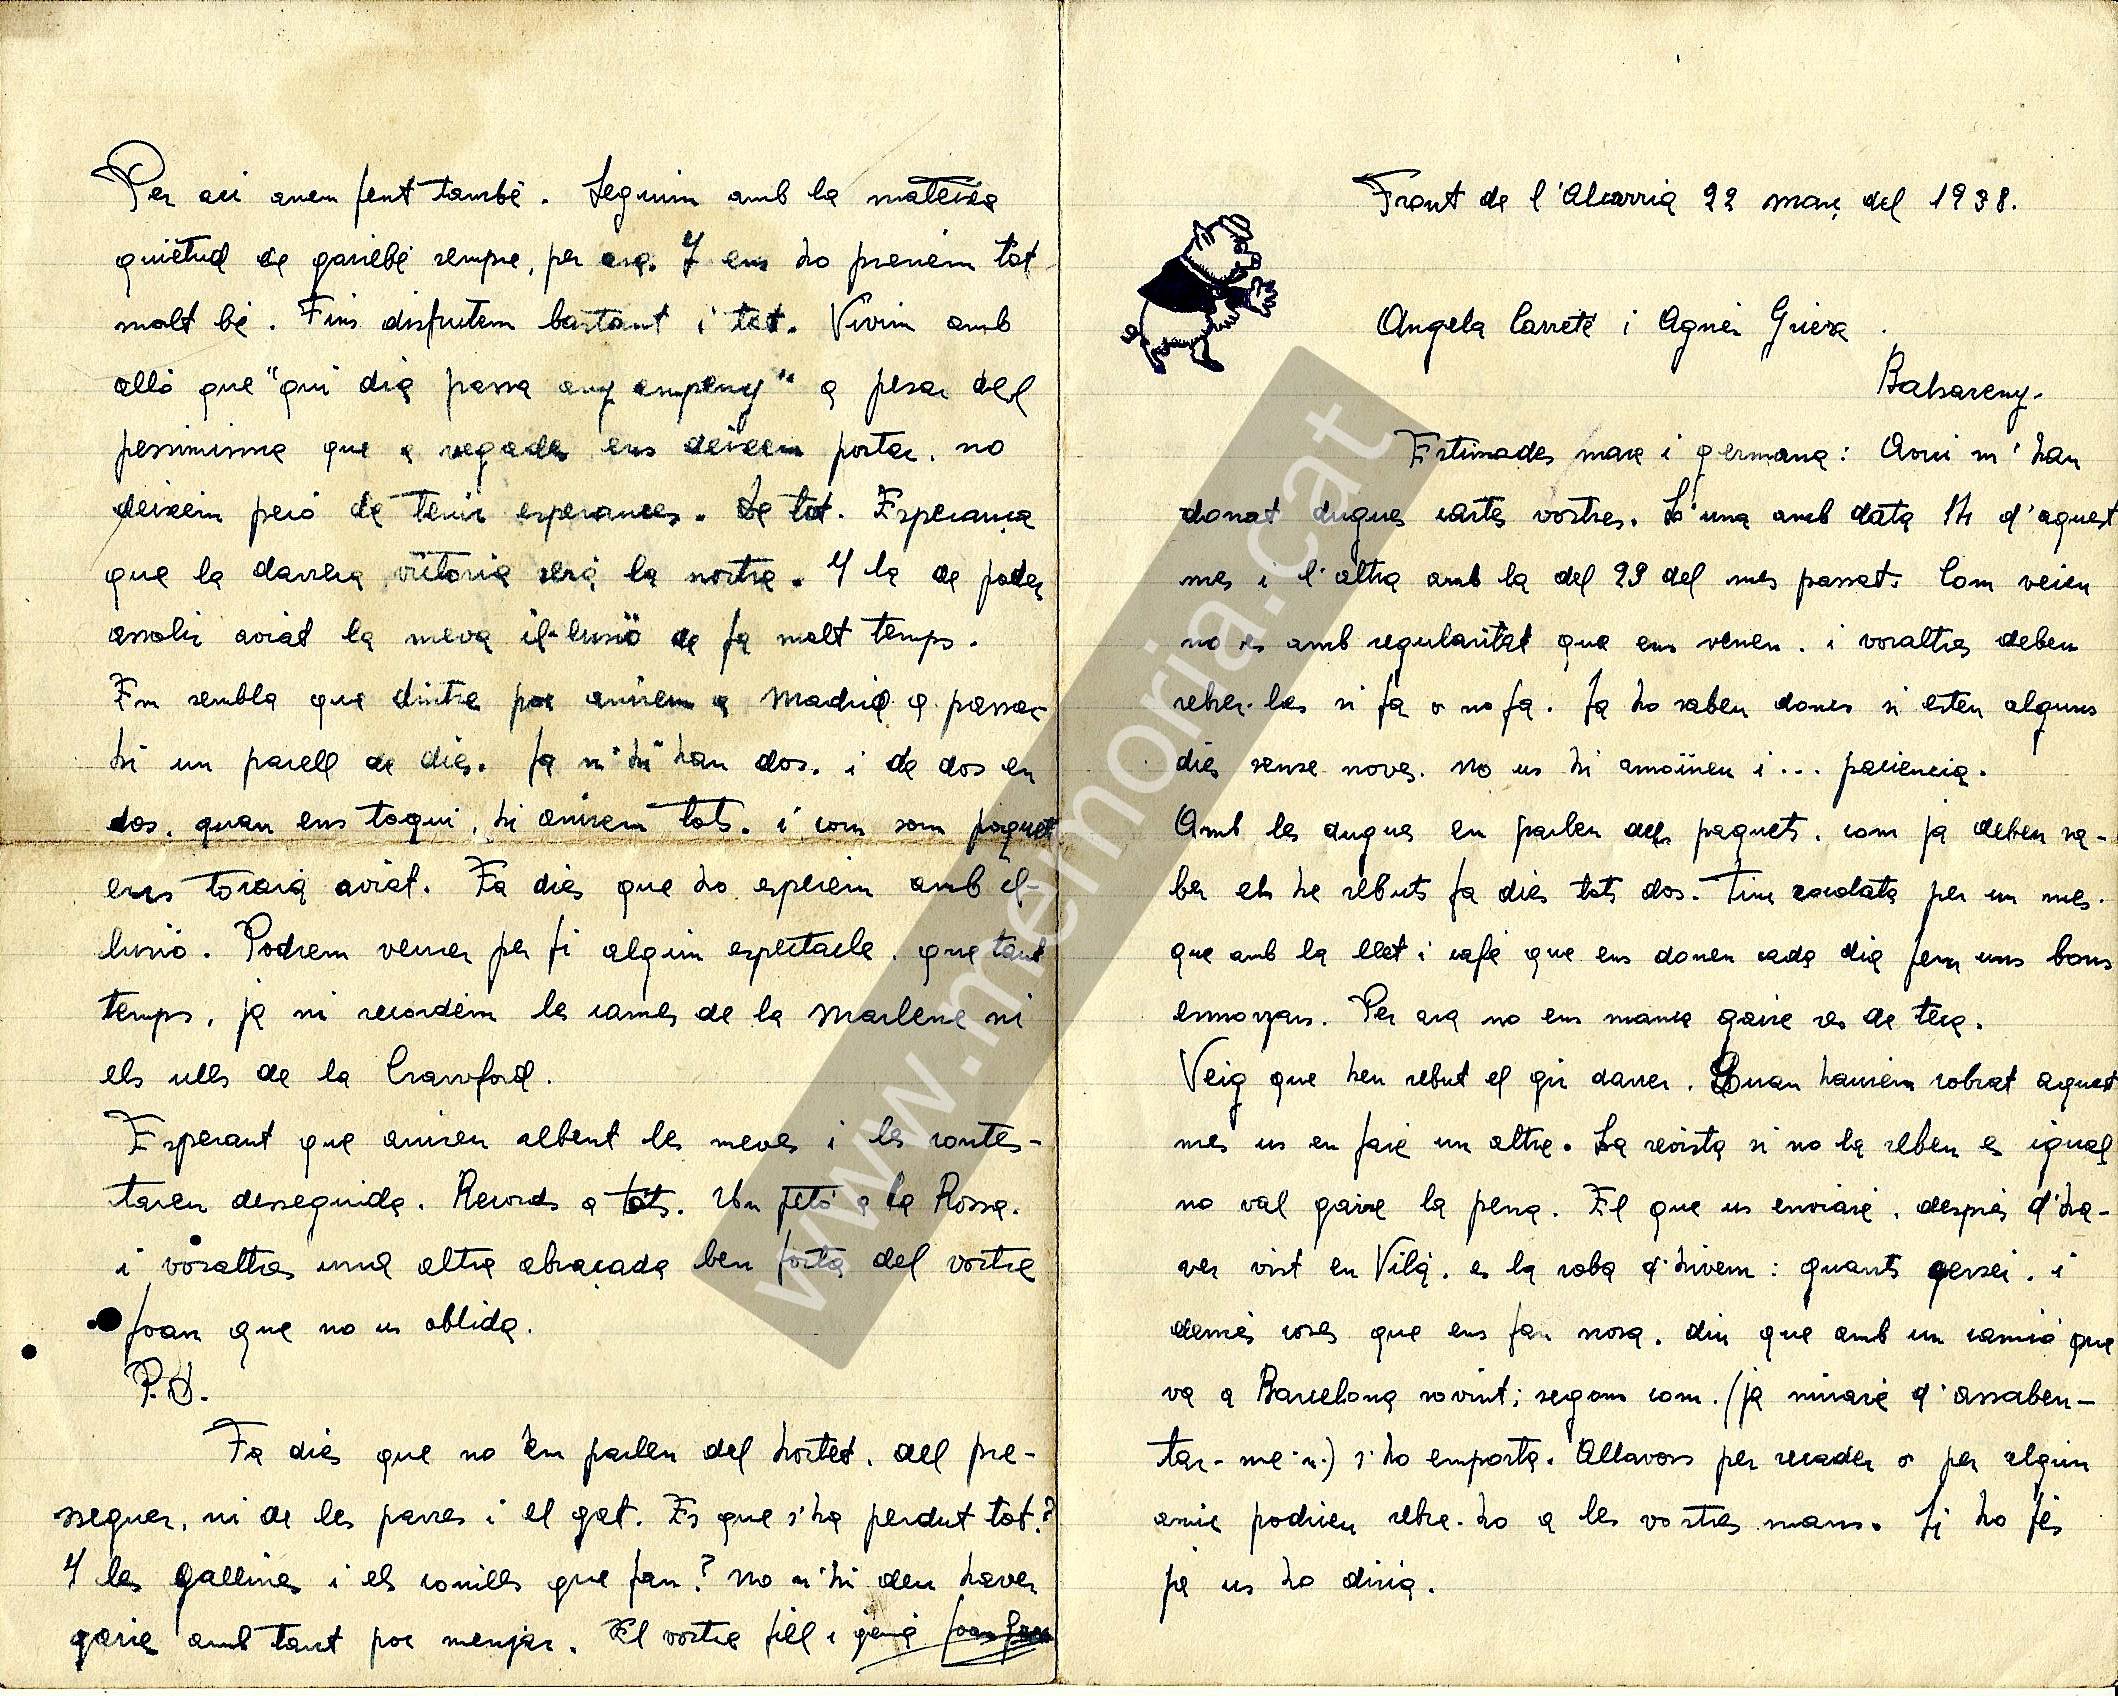 Front de l'Alcarria 22 març del 1938.
Angela Carreté i Agnès Griera.
Balsareny.
Estimades mare i germana: Avui m'han
donat dugues cartes vostres. L'una amb data 14 d'aquest
mes i l'altra amb la del 23 del mes passat. Com veieu
no es amb regularitat que ens venen. i vosaltres deben
rebrer-les si fa o no fa. Ja ho saben doncs si esten alguns
dies sense noves. No us hi amoïneu i... paciencia.
Amb les dugues en parlen dels paquets. com ja deben sa-
ber els he rebuts fa dies tots dos. Tinc xocolata per un mes.
que amb la llet i café que ens donen cada dia fem uns bons
esmorzars. Per ara no ens manca gaire res de teca.
Veig que heu rebut el gir darrer. Quan haurem cobrat aquest
mes us en faré un altre. La revista si no la reben es igual
no val gaire la pena. El que us enviaré, després d'ha-
ver vist en Vilà. es la roba d'hivern: guants gersei. i
demés coses que ens fan nosa. diu que amb un camió que
va a Barcelona sovint; segons com. (ja miraré d'assaben-
tar-me'n.) s'ho emporta. Allavors per recader o per algun
amic podrien rebre-ho a les vostres mans. Si ho fés
ja us ho diria.
Per aci anem fent també. Seguim amb la mateixa
quietud de gairebé sempre, per ara. Y ens ho prenem tot
molt bé. Fins disfrutem bastant i tot. Vivim amb
alló que "qui dia passa any empeny" a pesar del
pessimisme que a vegades ens deixem portar. no
deixem peró de tenir esperances. De tot. Esperança
que la darrera victoria será la nostra. Y la de poder
assolir aviat la meva il·lusió de fa molt temps.
Em sembla que dintre poc anirem a Madrid a passar
hi un parell de dies. Ja n'hi han dos. i de dos en
dos. quan ens toqui, hi anirem tots. i com som poquets
ens tocará aviat. Fa dies que ho esperem amb il-
lusió. Podrem veurer per fi algun espectacle. que tant
temps, ja ni recordem les cames de la Marlene ni
els ulls de la Crawford.
Esperant que aniren rebent les meves i les contes-
taren desseguida. Records a tots. Un petó a la Rossa.
i vosaltres una altra abraçada ben forta del vostre
Joan que no us oblida.
P.D.
Fa dies que no em parlen del hortet. del pre-
sseguer, ni de les parres i el gat. Es que s'ha perdut tot?
Y les gallines i els conills que fan? No n'hi deu haver
gaire amb tant poc menjar. El vostre fill i germà Joan
www.memoria.cat